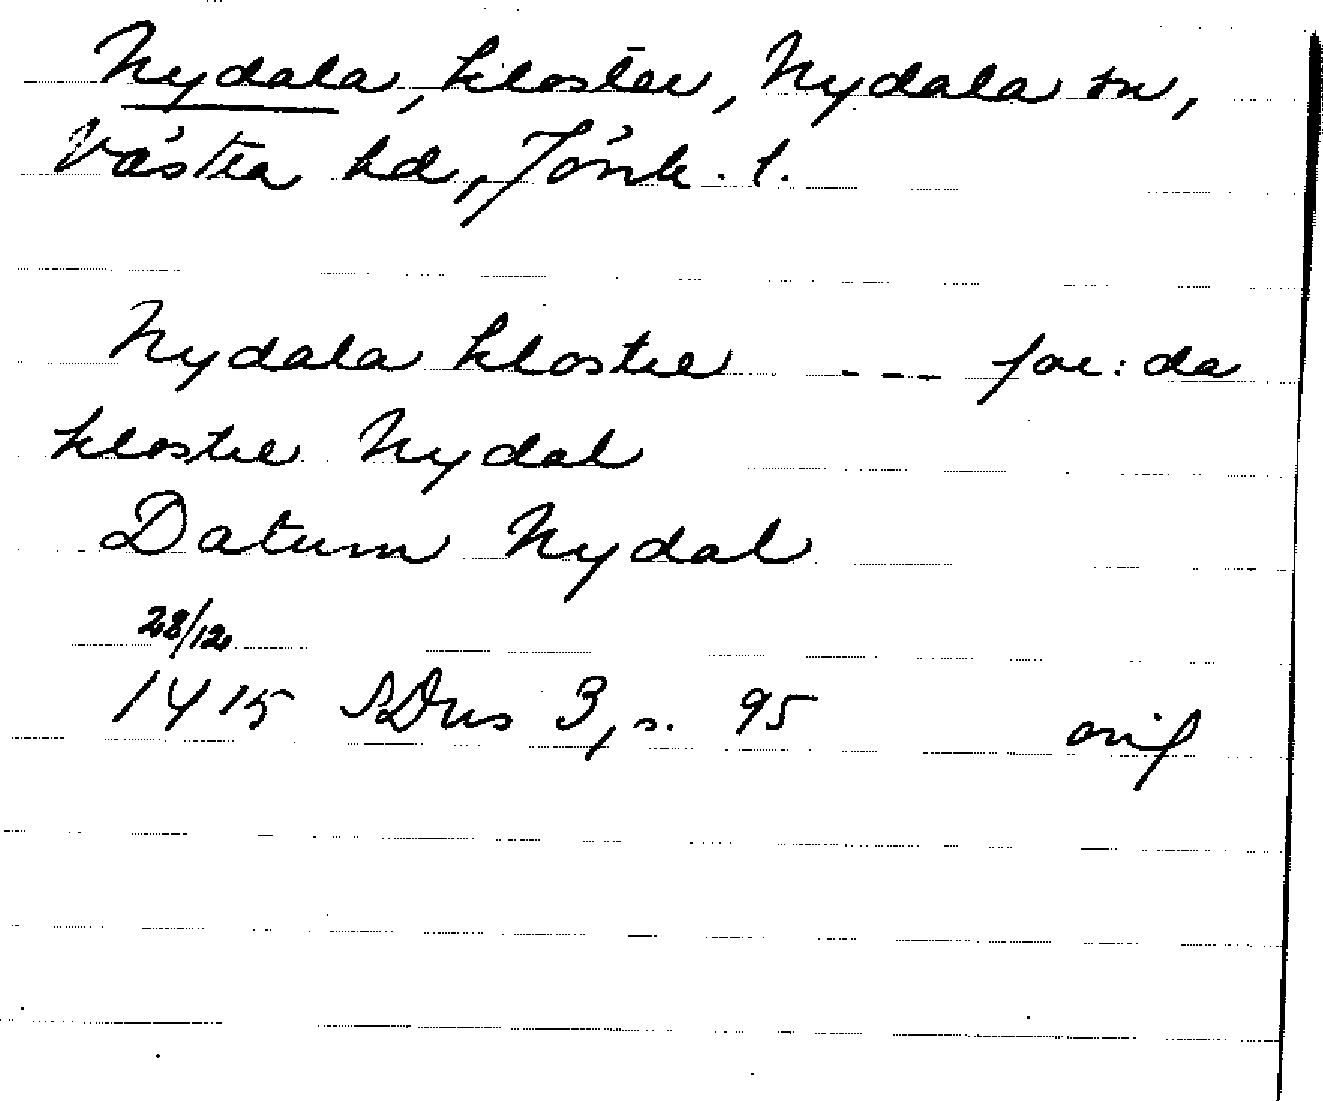 Nydala, kloster, Nydala sn,
Västra hd, Jönk. l.
Nydala kloster --- for:da
kloster Nydal
Datum Nydal
28/12
1415 SDns 3, s. 95 orig